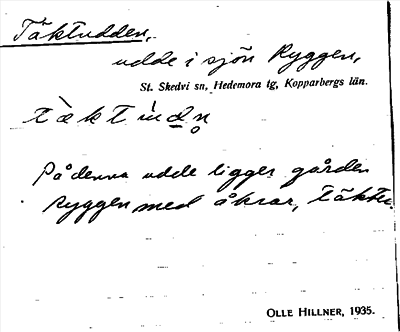 Täktudden,
udde i sjön Ryggen,
St. Skedvi sn, Hedemora tg, Kopparbergs län.
På denna udde ligger gården
Ryggen med åkrar, täkter.
OLLE HILLNER, 1935.